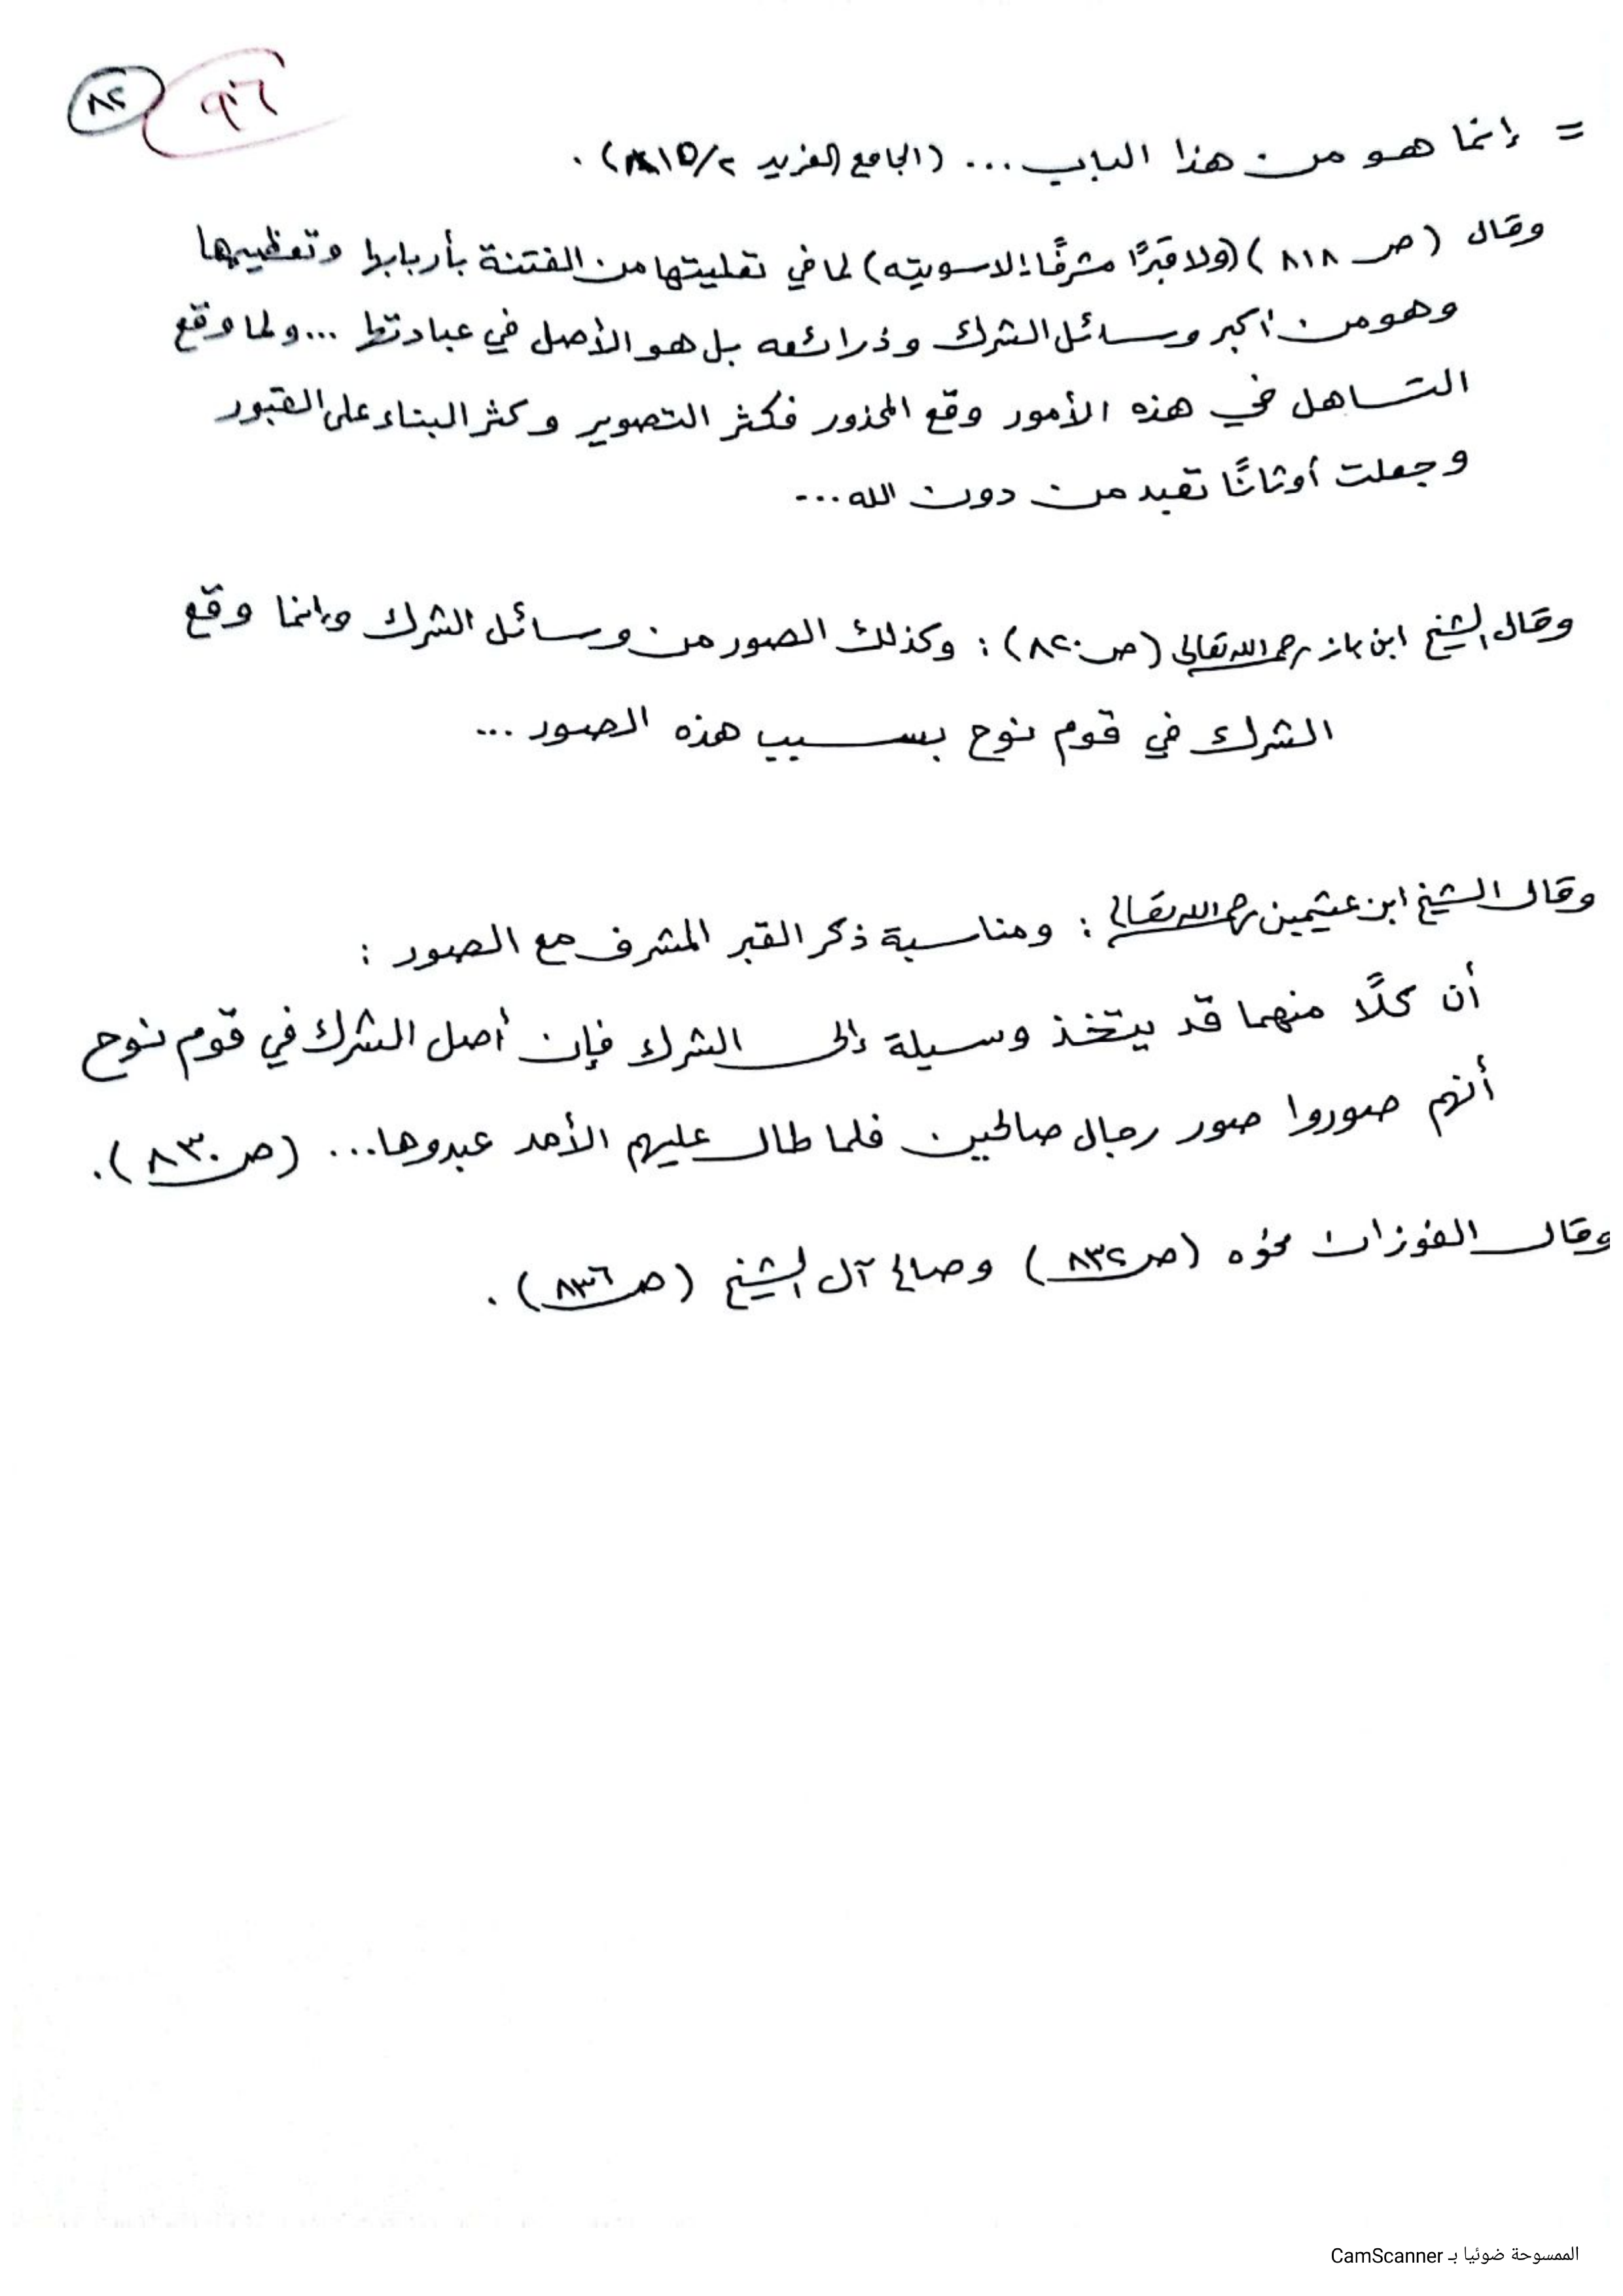 ٨٢ ٩٦
= إنما هو من هذا الباب ... (الجامع الفريد ٢/ ٨١٥).
وقال (ص ٨١٨) (ولا قبرًا مشرفًا إلا سويته) لما في تعليتها من الفتنة بأربابها وتعظيمها
وهو من أكبر وسائل الشرك وذرائعه بل هو الأصل في عبادتها ... ولما وقع
التساهل في هذه الأمور وقع المحذور فكثر التصوير وكثر البناء على القبور
وجعلت أوثانًا تعبد من دون الله ...
وقال الشيخ ابن باز رحمه الله تعالى (ص ٨٢٠) : وكذلك الصور من وسائل الشرك وإنما وقع
الشرك في قوم نوح بسبب هذه الصور ...
وقال الشيخ ابن عثيمين رحمه الله تعالى : ومناسبة ذكر القبر المشرف مع الصور :
أن كلًا منهما قد يتخذ وسيلة إلى الشرك فإن أصل الشرك في قوم نوح
أنهم صوروا صور رجال صالحين فلما طال عليهم الأمد عبدوها ... (ص ٨٣٠).
وقال الفوزان نحوه (ص ٨٣٢) وصالح آل الشيخ (ص ٨٣٦).
الممسوحة ضوئيا بـ CamScanner